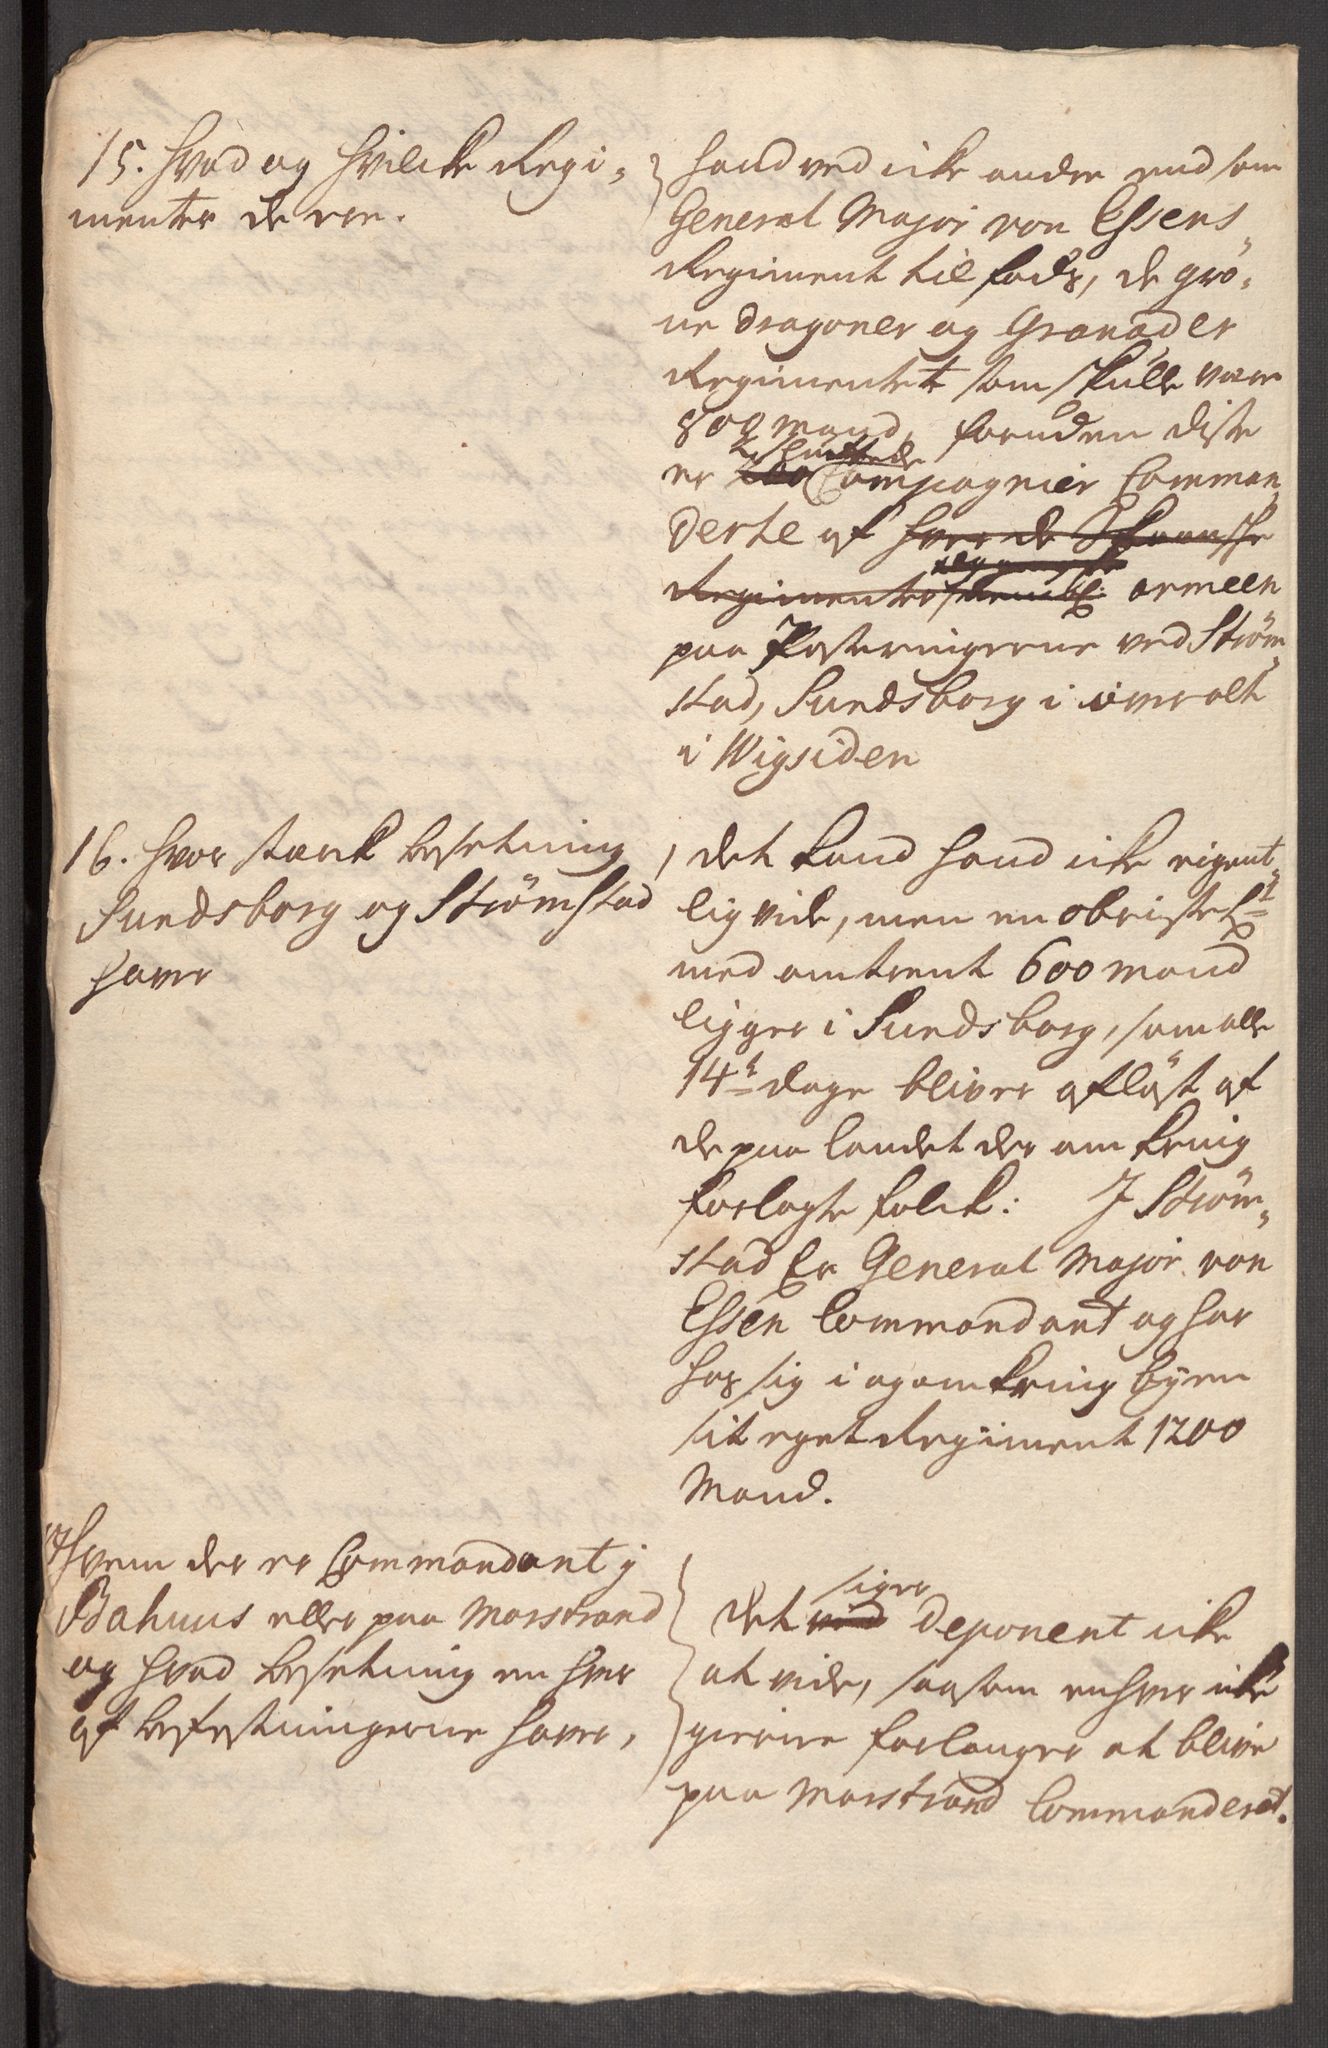 15. Hvad og hvilcke Regi-
menter de ere.
Hand ved icke andre end som
General Major von Essens
Regiment til fods, de grö-
ne Dragoner og Granader
Regimentet som skulle være
800 mand, foruden disse
er Compagnier Comman-
derte af hver de Skaansche
Regimenter armeen
paa Posteringerne ved Ström-
stad, Sundsborg i överalt
i Wigsiden
16. Hvor stærck besetning
Sundsborg og Strömstad
haver
det kand hand icke eigent-
lig vide, men en obriste Lt
med omtrent 600 mand
ligger i Sundsborg, som alle
14t dage bliver aflöst af
de paa landet der om kring
forlagte folck: J Ström-
stad Er General Major von
Essen Commendant og har
hos sig i og omkring byen
sit eget Regiment 1200
Mand.
17 Hvem der er Commendant j
Bahuus eller paa Marstrand
og hvad besetning en hver
af befestningerne haver,
siger
det ved Deponent icke
at vide, saasom enhver icke
gierne forlanger at blive
paa Marstrand Commanderet.